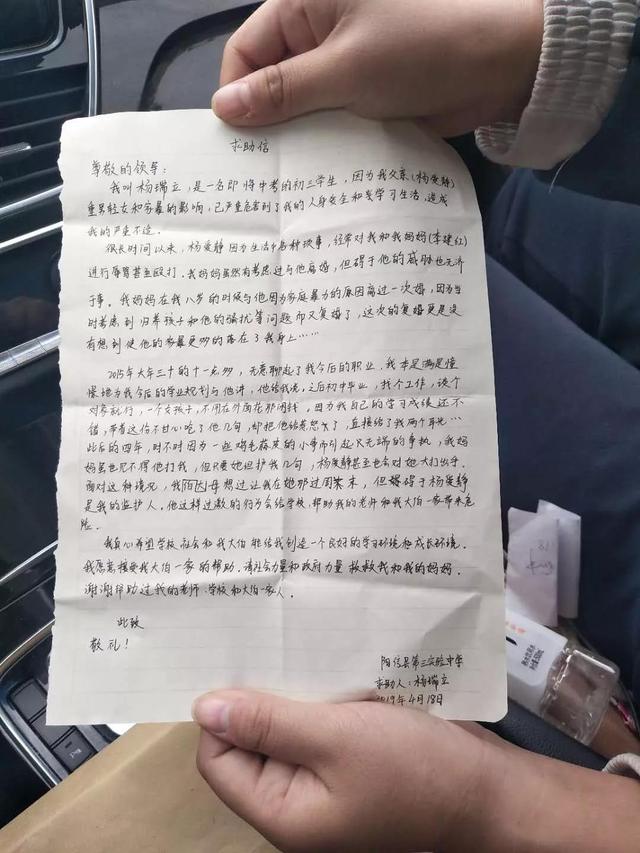 求助信
尊敬的领导:
我叫杨瑞立，是一名即将中考的初三学生，因为我父亲(杨爱静)
重男轻女和家暴的影响，已严重危害到了我的人身安全和学习生活，造成
我的严重不适。
很长时间以来，杨爱静因为生活中各种琐事，经常对我和我妈妈(李建红)
进行辱骂甚至殴打。我妈妈虽然有考虑过与他离婚，但碍于他的威胁也无济
于事。我妈妈在我八岁的时候与他因为家庭暴力的原因离过一次婚，因为当
时考虑到归养孩子和他的骚扰等问题而又复婚了，这次的复婚更是没
有想到使他的家暴更多的落在了我身上……
2015年大年三十的十一点多，无意聊起了我今后的职业，我本是满是憧
憬地为我今后的学业规划与他讲，他给我说，之后初中毕业，找个工作，谈个
对象就行，一个女孩子，不用在外面花那闲钱。因为我自己的学习成绩还不
错，带着这份不甘心吃了他几句，却把他给惹怒火了，直接给了我两个耳光…
此后的四年，时不时因为一些鸡毛蒜皮的小事而引起只无端的争执，我妈
妈虽也见不得他打我，但只要她袒护我几句，杨爱静甚至也会对她大打出手。
面对这种情况，我伯父母想过让我在她那过周末，但碍于杨爱静
是我的监护人。他这种过激的行为会给学校，帮助我的老师和我大伯一家带来危
险。
我真心希望学校社会和我大伯能给我创造一个良好的学习环境和成长环境。
我愿意接受我大伯一家的帮助。请社会力量和政府力量救救我和我的妈妈。
谢谢帮助过我的老师、学校和大伯一家人。
此致
敬礼!
阳信县第三实验中学
求助人:杨瑞立
2019年4月18日